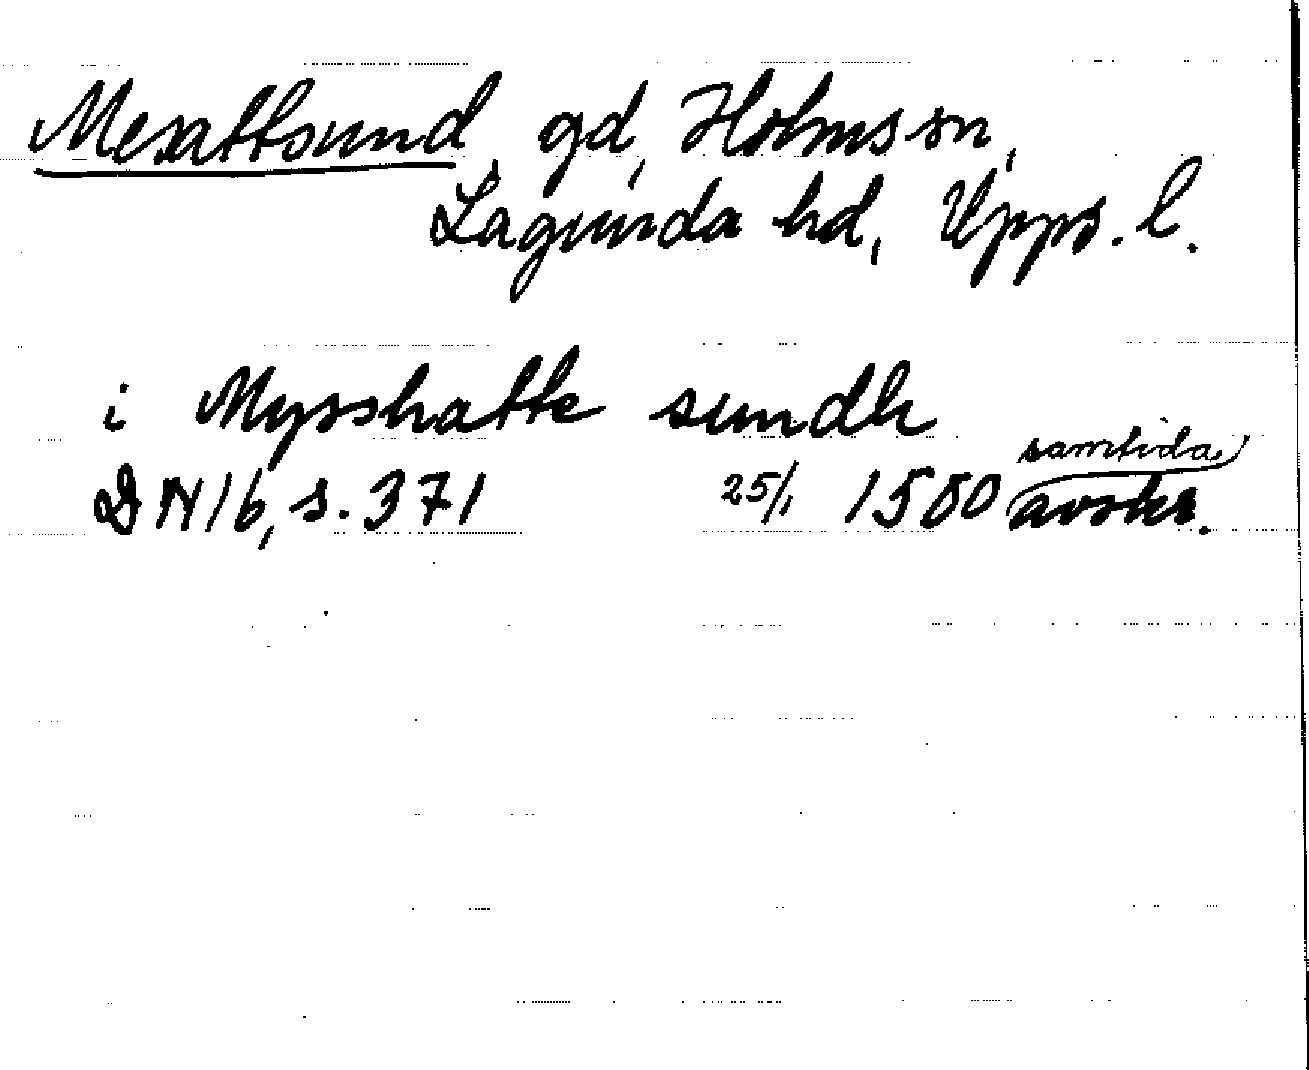 Mesattsund, gd, Holms sn,
Lagunda hd, Upps. l.
i Mysshatte sundh
DN 16, s. 371 25/1 1500 samtida avskr.